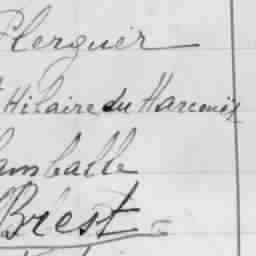 Plerguer
t Hilaire du Harcouët
Lamballe
Brest